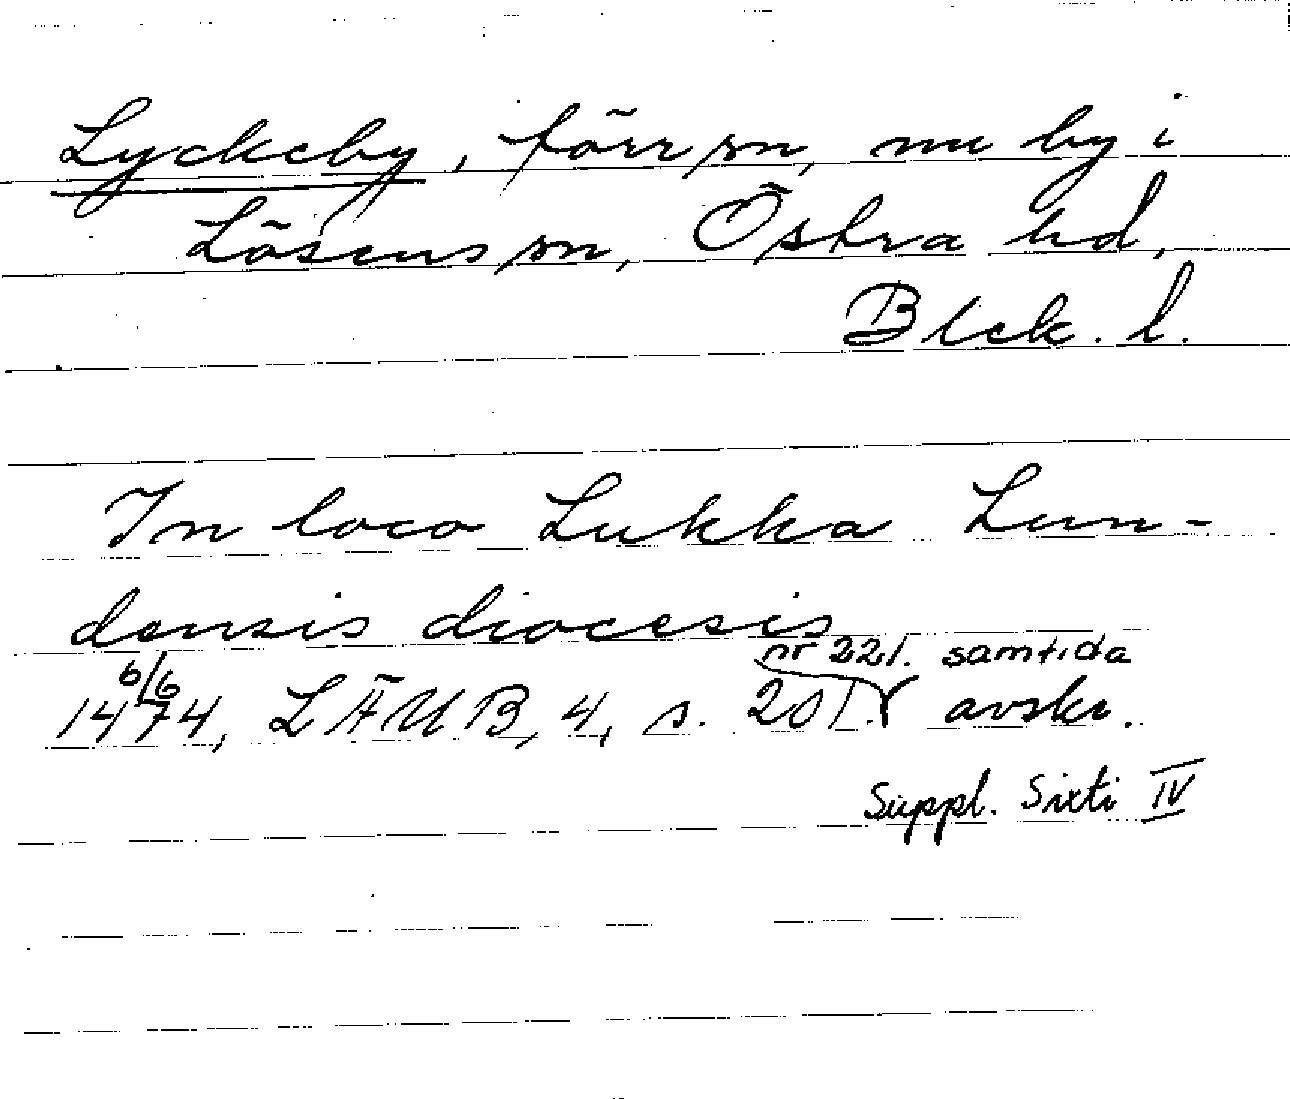 Lyckeby, förr sn, nu by i
Lösens sn, Östra hd,
Blek. l.
In loco Lukka Lun-
densis diocesis
6/6 nr 221. samtida
1474, LÄUB, 4, s. 201. avskr.
Suppl. Sixti IV